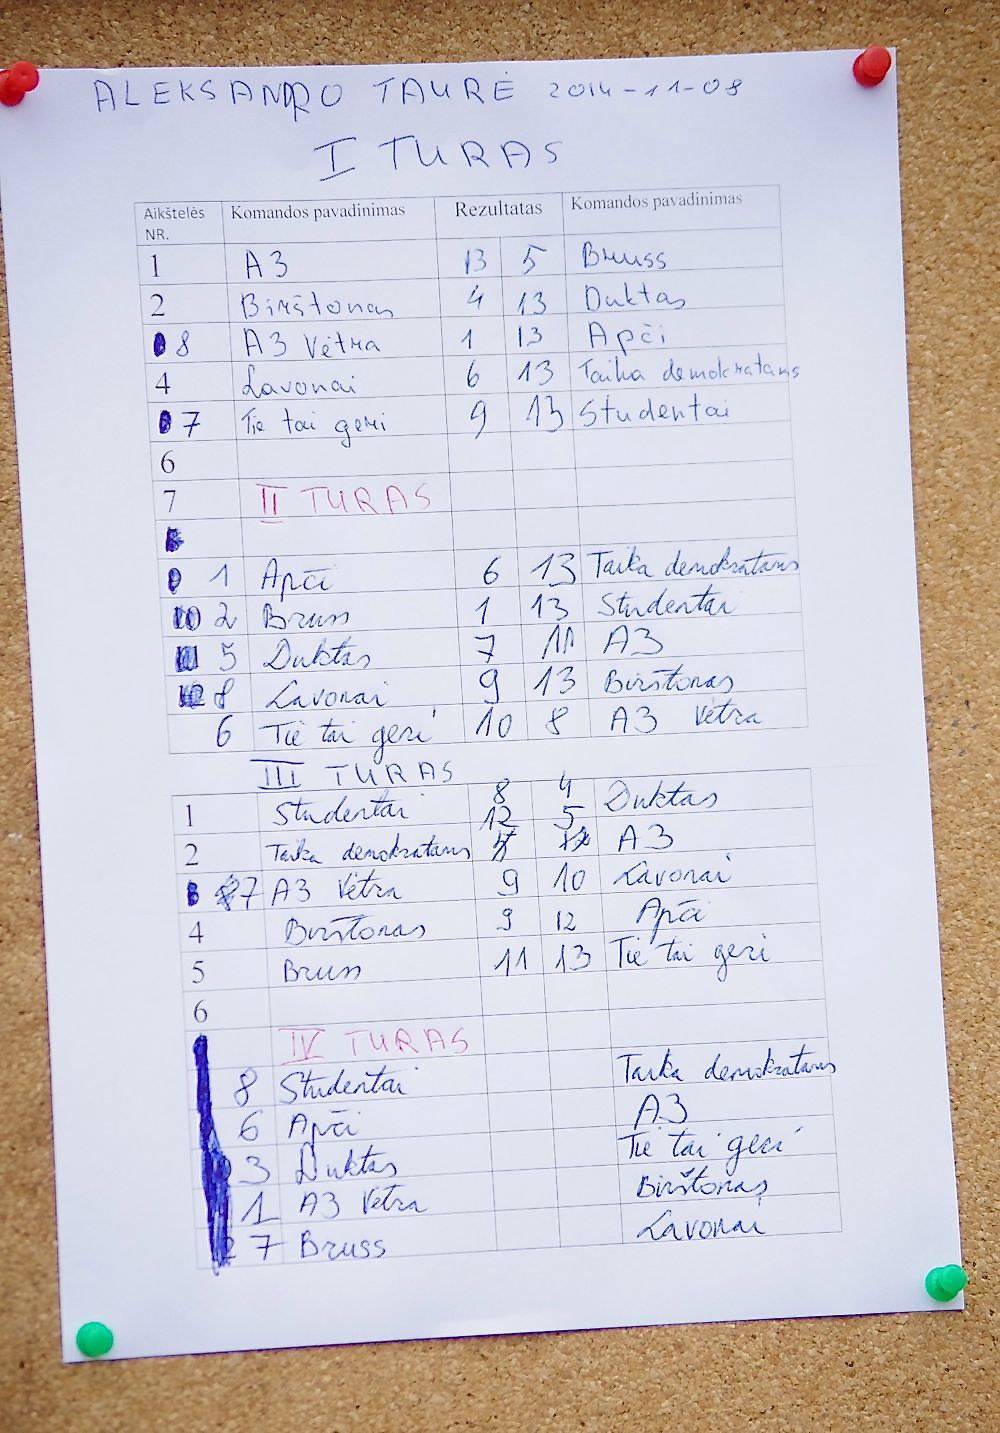 ALEKSANDRO TAURĖ 2014-11-08
I TURAS
Aikštelės NR. Komandos pavadinimas Rezultatas Komandos pavadinimas
1 A3 13 5 Bruss
2 Birštonas 4 13 Duktas
8 A3 Vėtra 1 13 Apči
4 Lavonai 6 13 Taika demokratams
7 Tie tai geri 9 13 Studentai
6
7 II TURAS
1 Apči 6 13 Taika demokratams
10 2 Bruss 1 13 Studentai
11 5 Duktas 7 11 A3
12 8 Lavonai 9 13 Birštonas
6 Tie tai geri 10 8 A3 Vėtra
III TURAS
1 Studentai 8 4 Duktas
2 Taika demokratams 12 5 A3
7 A3 Vėtra 9 10 Lavonai
4 Birštonas 9 12 Apči
5 Bruss 11 13 Tie tai geri
6
IV TURAS
8 Studentai Taika demokratams
6 Apči A3
3 Duktas Tie tai geri
1 A3 Vėtra Birštonas
7 Bruss Lavonai